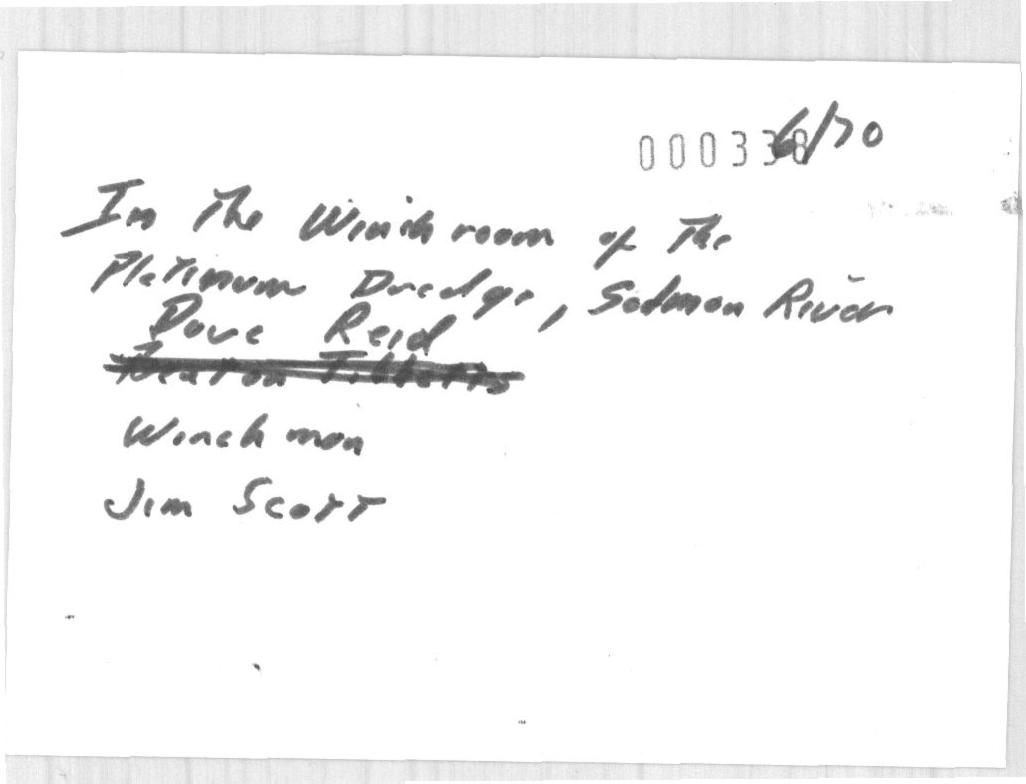 000338
6/70
In The Winch room of The
Platinum Dredge, Salmon River
Dave Reid
Winch man
Jim Scott